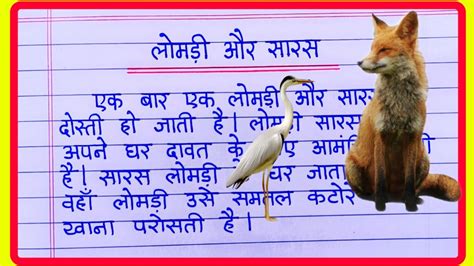 लोमड़ी और सारस
एक बार एक लोमड़ी और सारस
दोस्ती हो जाती है। लोमड़ी सारस
अपने घर दावत के
है। सारस लोमड़ी के घर जाता
वहाँ लोमड़ी उसे समतल कटोरे
खाना परोसती है।